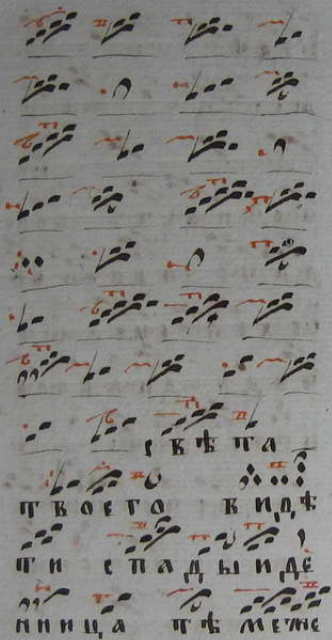 свѣта
твоего видѣ
ти спадыиде
нница тѣмеже